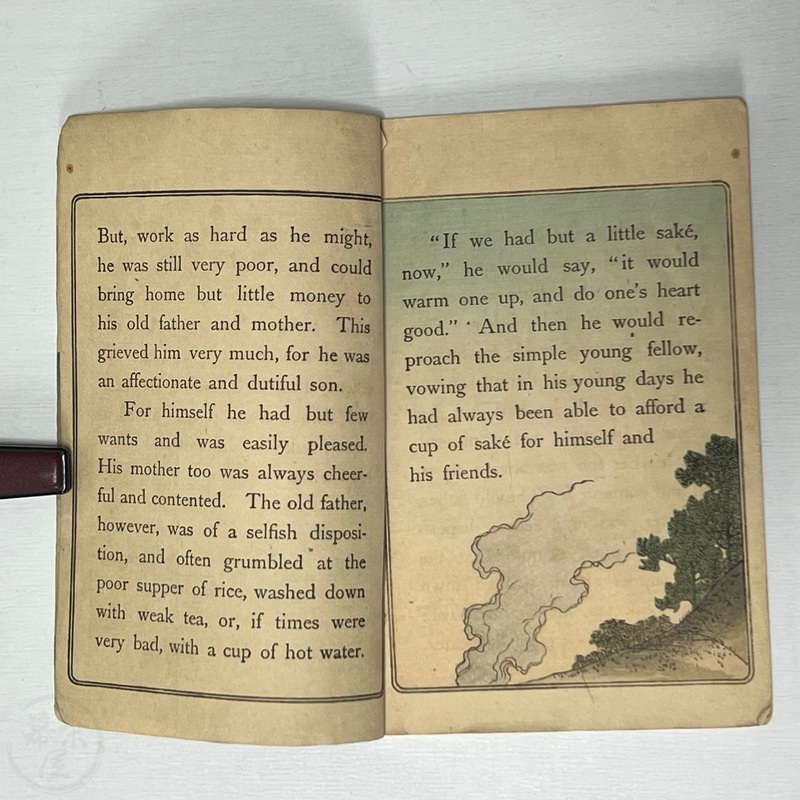 But, work as hard as he might,
he was still very poor, and could
bring home but little money to
his old father and mother. This
grieved him very much, for he was
an affectionate and dutiful son.
For himself he had but few
wants and was easily pleased.
His mother too was always cheer-
ful and contented. The old father,
however, was of a selfish disposi-
tion, and often grumbled at the
poor supper of rice, washed down
with weak tea, or, if times were
very bad, with a cup of hot water.
“If we had but a little saké,
now,” he would say, “it would
warm one up, and do one's heart
good.” And then he would re-
proach the simple young fellow,
vowing that in his young days he
had always been able to afford a
cup of saké for himself and
his friends.